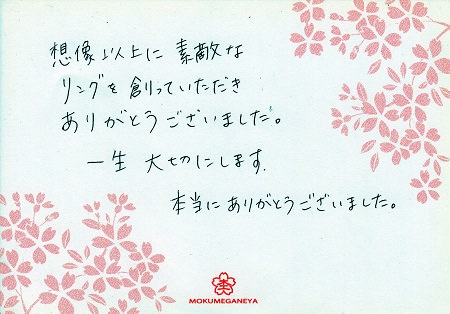 想像以上に 素敵な
リングを 創っていただき
ありがとうございました。
一生 大切にします.
本当に ありがとうございました。
MOKUMEGANEYA